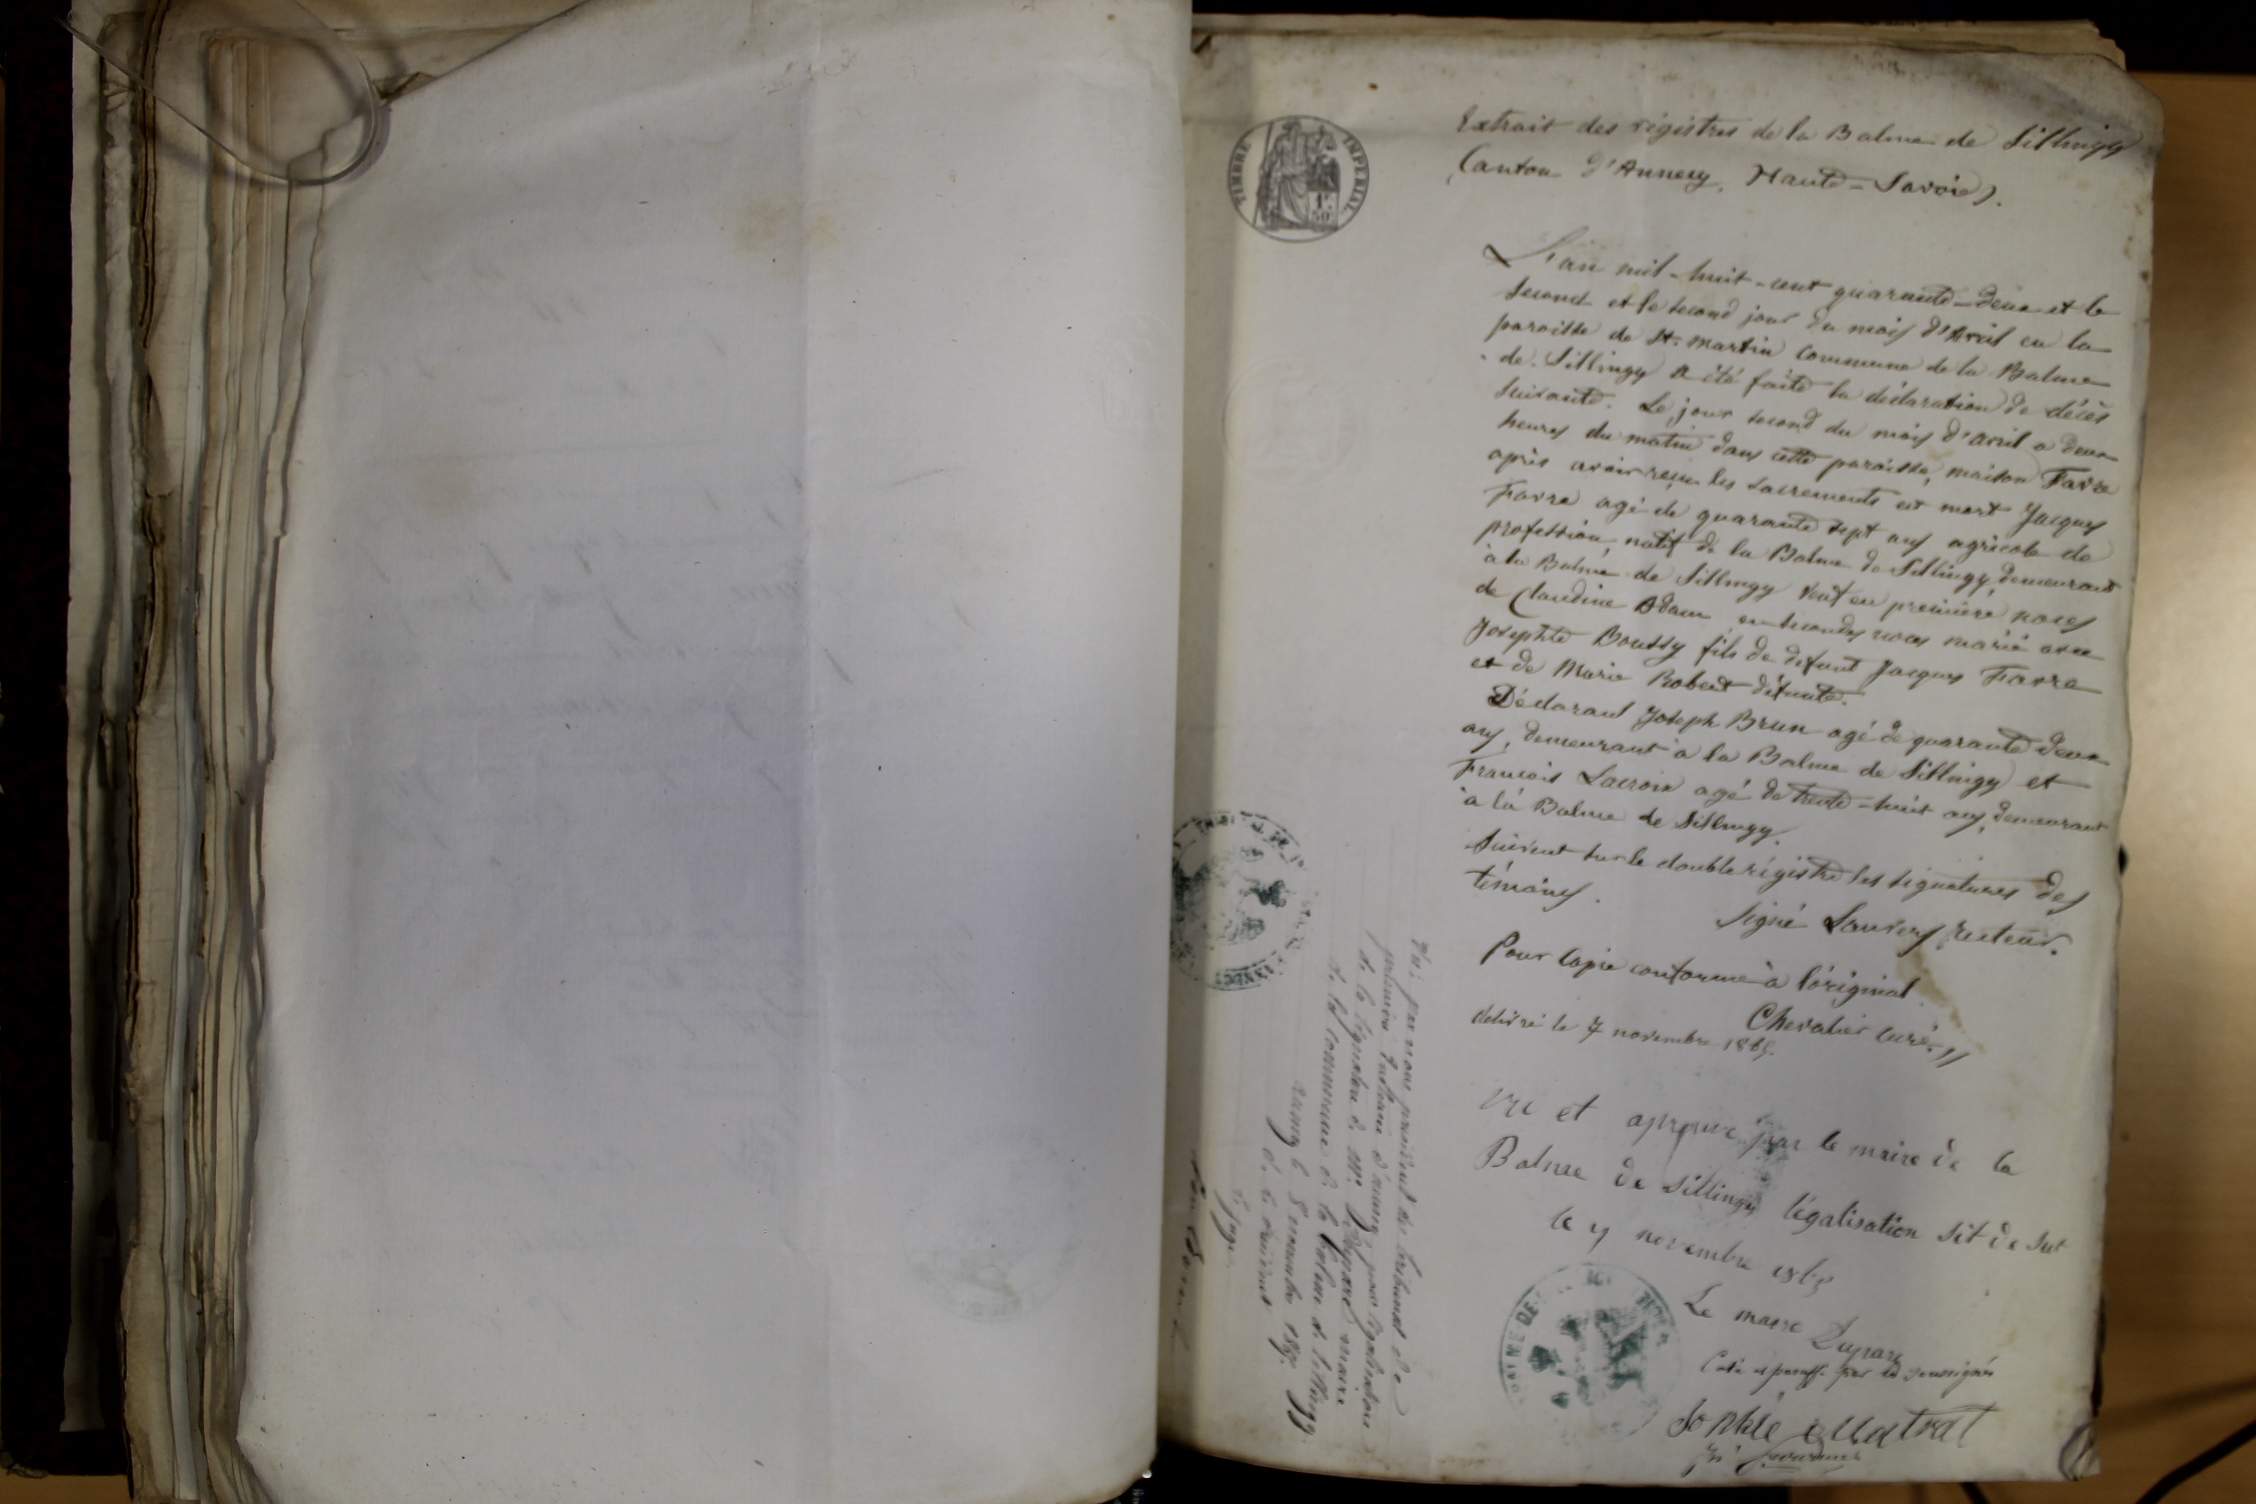 TIMBRE IMPERIAL
1F
50
Extrait des régistres de la Balme de Sillingy
(Canton d'Annecy, Haute-Savoie).
L'an mil-huit-cent quarante-deux et le
second et le second jour du mois d'Avril en la
paroisse de St. Martin commune de la Balme
de Sillingy a été faite la déclaration de décès
suivante. Le jour second du mois d'avril a deux
heures du matin dans cette paroisse, maison Favre
après avoir reçu les sacrements est mort Jacques
Favre agé de quarante sept ans agricole de
profession, natif de la Balme de Sillingy, demeurant
à la Balme de Sillingy veuf en première noces
de Claudine Adam en secondes noces marié avec
Josephte Boussy fils de défunt Jacques Favre
et de Marie Robert défunte.
Déclarant Joseph Brun agé de quarante deux
ans, demeurant à la Balme de Sillingy et
François Lacroix agé de trente-huit ans, demeurant
à la Balme de Sillingy.
Suivent sur le double régistre les signatures des
témoins.
Signé recteur.
Pour Copie conforme à l'original
Chevalier curé
delivré le 7 novembre
vu et aprouve par le maire de la
Balme de Sillingy légalisation sit de sus
le 7 novembre
Le maire Dupare
Coté et paraffé par les soussignés
Sophie Mastrat
Vu par nous président du tribunal de
première instance d'annecy pour légalisation
de la signature de Mr Dupare maire
de la commune de la Balme de Sillingy
annecy le 8 novembre